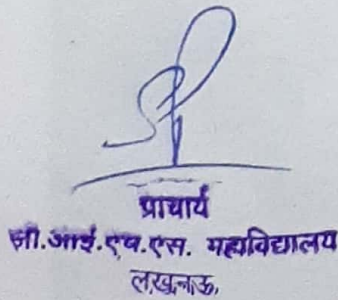 प्राचार्य
जी.आई.एच.एस. महाविद्यालय
लखनऊ,